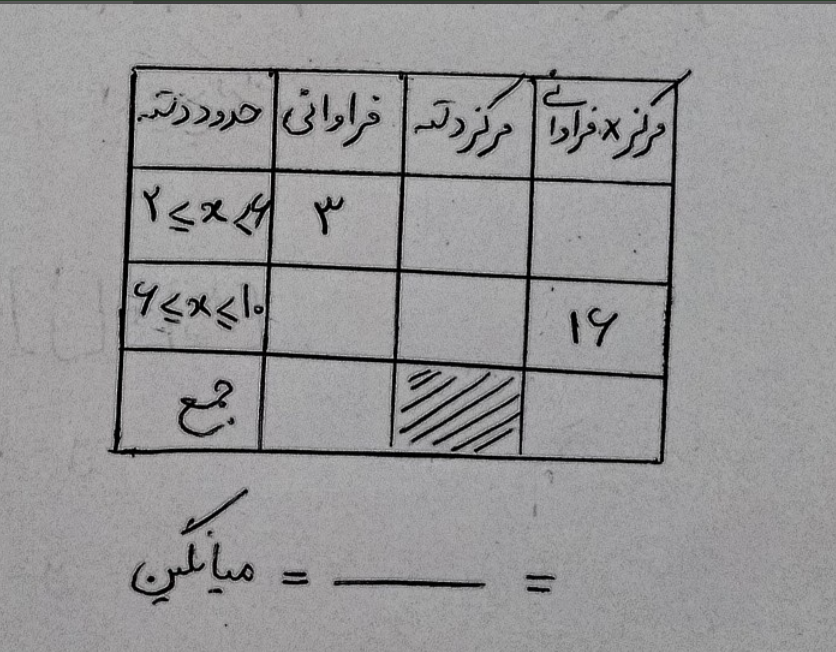 حدود دسته فراوانی مرکز دسته مرکز × فراوانی
۲ ≤ x < ۶ ۳
۶ ≤ x ≤ ۱۰ ۱۶
جمع
میانگین = ـــــــ =